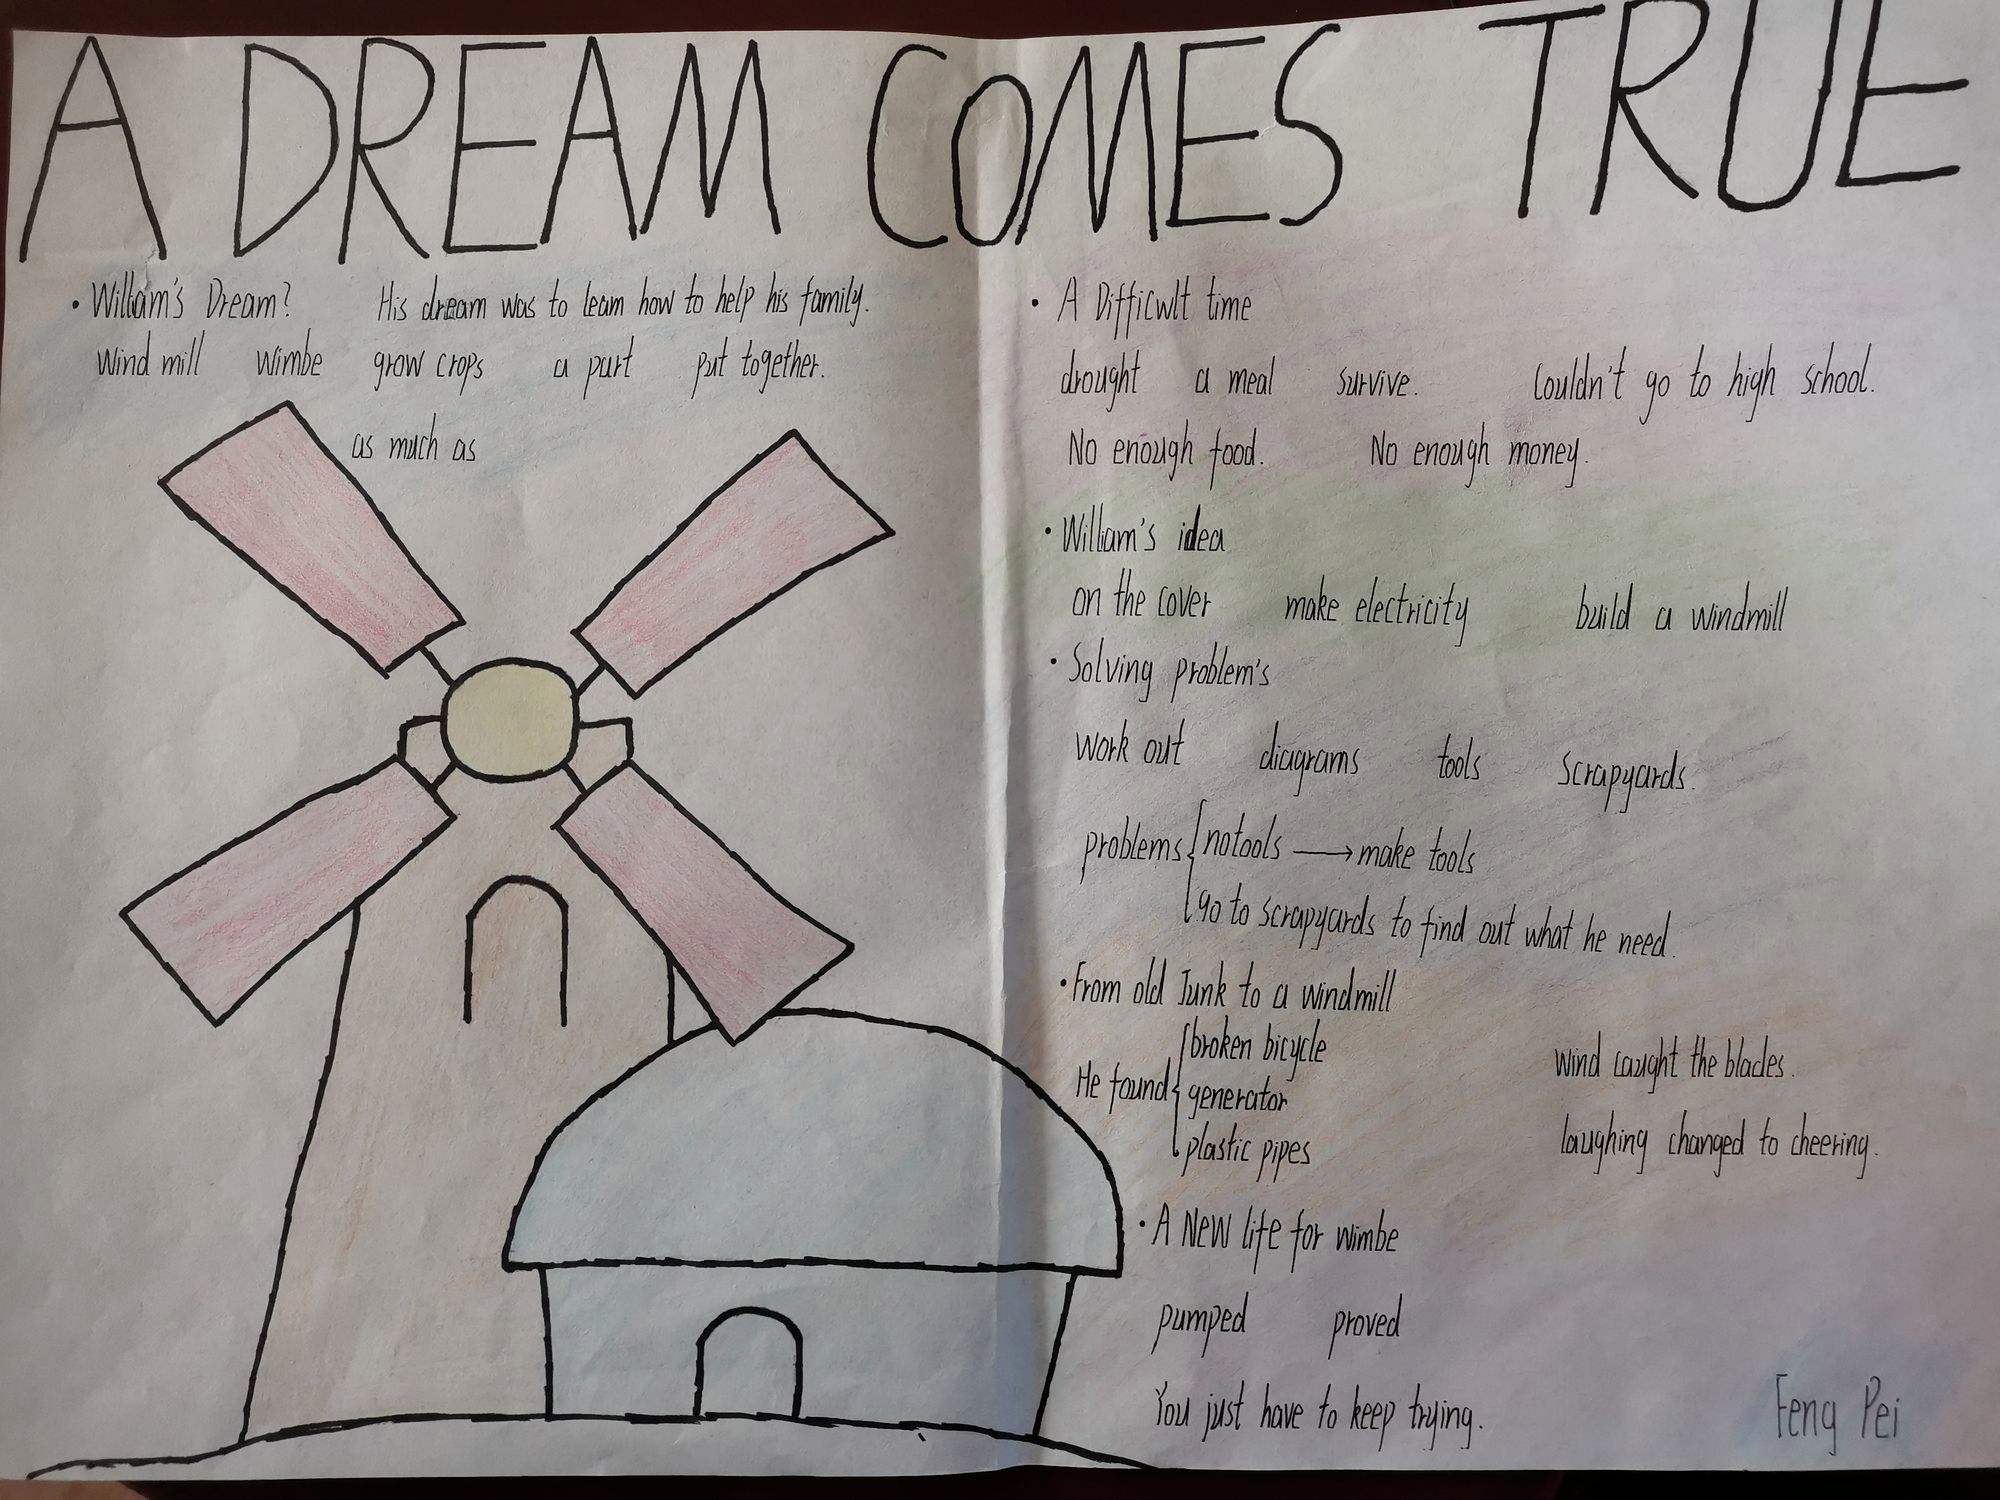 A DREAM COMES TRUE
• William's Dream? His dream was to learn how to help his family.
Wind mill Wimbe grow crops a part put together.
as much as
• A Difficult time
drought a meal survive. Couldn't go to high school.
No enough food. No enough money.
• William's idea
on the cover make electricity build a windmill
• Solving problem's
Work out diagrams tools Scrapyards.
problems { notools → make tools
go to scrapyards to find out what he need.
• From old Junk to a windmill
He found { broken bicycle
generator
plastic pipes
wind caught the blades.
laughing changed to cheering.
• A NeW life for wimbe
pumped proved
You just have to keep trying.
Feng Pei